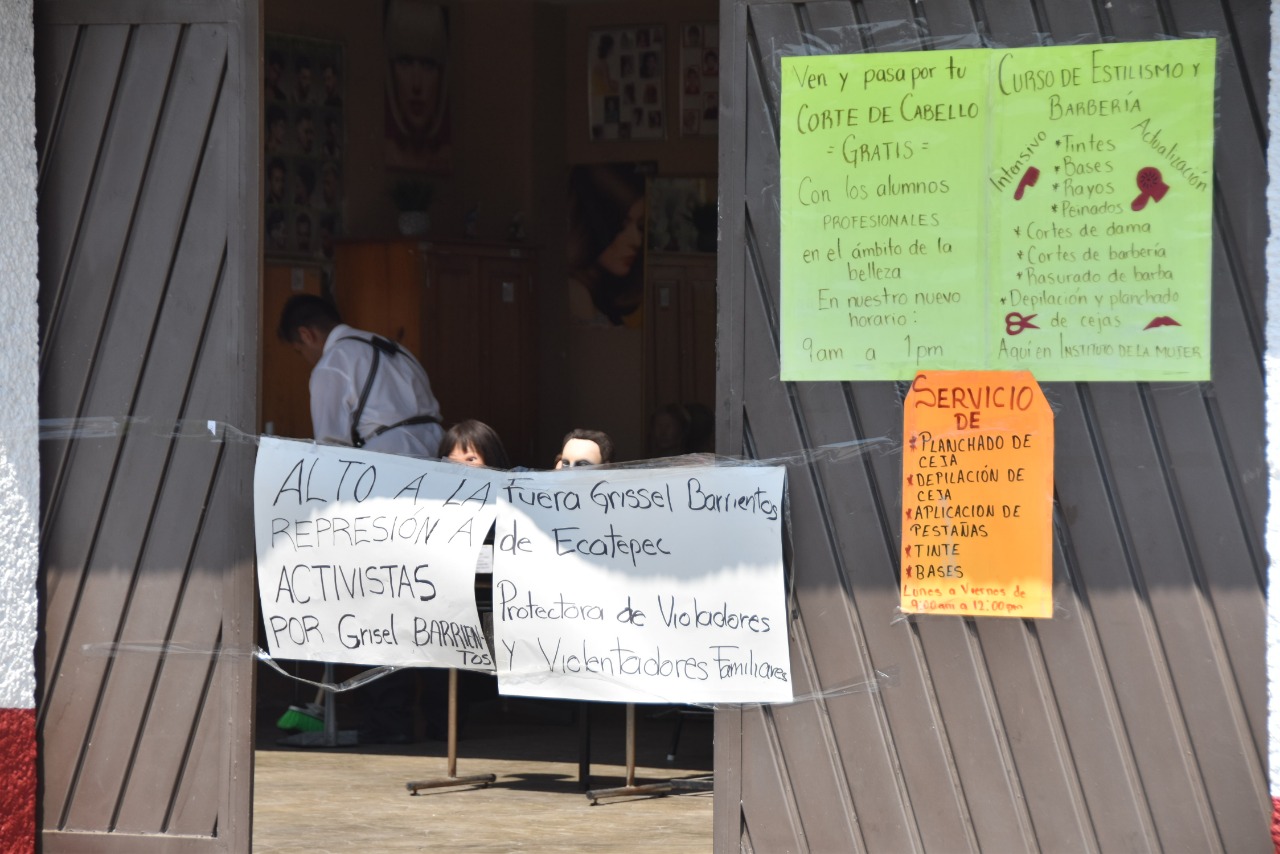 Ven y pasa por tu
CORTE DE CABELLO
= GRATIS =
Con los alumnos
PROFESIONALES
en el ámbito de la
belleza
En nuestro nuevo
horario:
9am a 1pm
CURSO DE ESTILISMO Y
BARBERÍA
Intensivo
Actualización
*Tintes
*Bases
*Rayos
*Peinados
*Cortes de dama
*Cortes de barbería
*Rasurado de barba
*Depilación y planchado
de cejas
Aquí en INSTITUTO DE LA MUJER
SERVICIO
DE
*PLANCHADO DE
CEJA
*DEPILACIÓN DE
CEJA
*APLICACION DE
PESTAÑAS
*TINTE
*BASES
Lunes a Viernes de
9:00am a 12:00pm
ALTO A LA
REPRESIÓN A
ACTIVISTAS
POR Grisel BARRIEN-
TOS
Fuera Grissel Barrientos
de Ecatepec
Protectora de Violadores
Y Violentadores Familiares